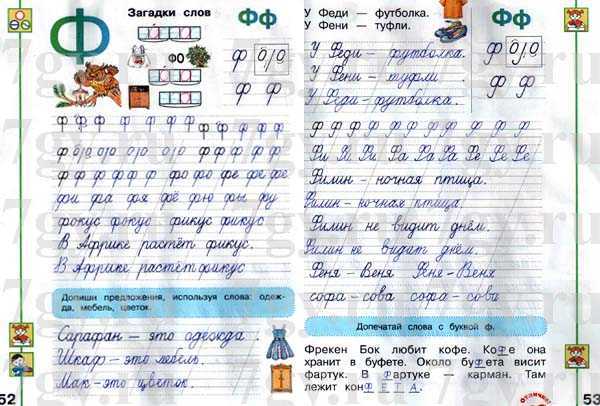 Загадки слов
Фф
Ф
ФО
ф
ф ф
ф ф ф ф ф ф ф
фо фо фе фе фе
фи фа фя фё фю фы фу
фокус фокус фикус фикус
В Африке растёт фикус.
В Африке растёт фикус
Допиши предложения, используя слова: одеж-
да, мебель, цветок.
Сарафан – это одежда.
Шкаф – это мебель.
Мак – это цветок.
52
У Феди – футболка.
У Фени – туфли.
Фф
У Феди – футболка.
У Фени – туфли.
У Феди – футболка.
ф
ф ф
ф ф ф ф ф ф ф ф ф ф
Фи Фи Фи Фа Фа Фа Фе Фе Фе
Филин – ночная птица.
Филин – ночная птица
Филин не видит днём.
Филин не видит днём.
Феня – Веня Феня – Веня
софа – сова софа – сова
Допечатай слова с буквой ф.
Фрекен Бок любит кофе. Кофе она
хранит в буфете. Около буфета висит
фартук. В фартуке — карман. Там
лежит конФЕТА.
отлично!
53
7gy.ru